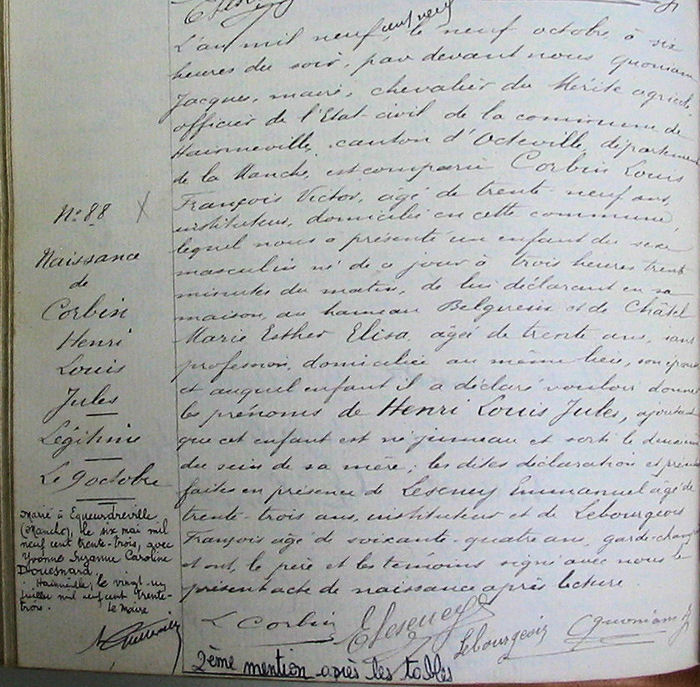 L'an mil neuf cent neuf, le neuf octobre à six
heures du soir, par devant nous Quoniam
Jacques, maire, chevalier du Mérite agricole,
officier de l'Etat-civil de la commune de
Hainneville, canton d'Octeville, département
de la Manche, est comparu Corbin Louis
François Victor, âgé de trente-neuf ans,
instituteur, domicilié en cette commune,
lequel nous a présenté un enfant du sexe
masculin né de ce jour à trois heures trente
minutes du matin, de lui déclarant en sa
maison, au hameau et de Châtel
Marie Esther Elisa, âgée de trente ans, sans
profession, domiciliée au même lieu, son épouse
et auquel enfant il a déclaré vouloir donner
les prénoms de Henri Louis Jules, ajoutant
que cet enfant est né jumeau et sorti le deuxième
du sein de sa mère; les dites déclaration et
faites en présence de Leseney Emmanuel âgé de
trente-trois ans, instituteur et de Lebourgeois
François âgé de soixante-quatre ans, garde-champ
et ont, le père et les témoins signé avec nous le
présent acte de naissance après lecture.
L Corbin
E Leseney
Lebourgeois
Quoniam J
Nº 88 X
Naissance
de
Corbin
Henri
Louis
Jules
Légitime
Le 9 octobre
Marié à Equeurdreville
(Manche), le six mai mil
neuf cent trente-trois, avec
Yvonne Suzanne Caroline
Hainneville, le vingt-un
juillet mil neuf cent trente-
trois. Le Maire
2ème mention après les tables